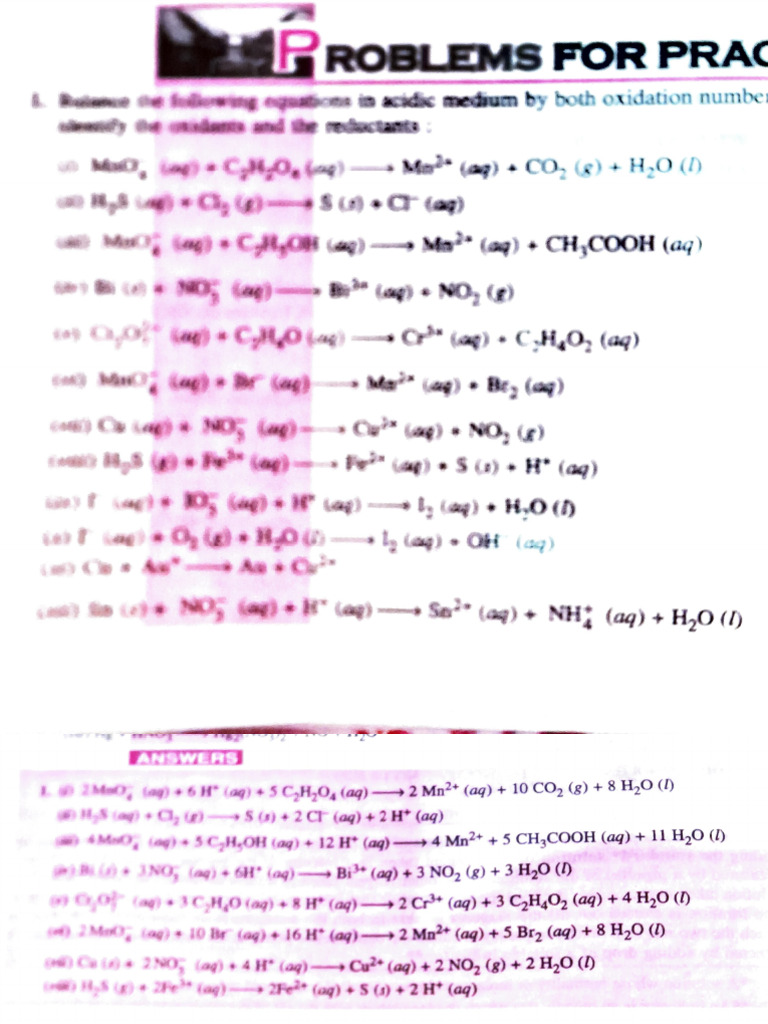 PROBLEMS FOR PRAC
1. Balance the following equations in acidic medium by both oxidation number
identify the oxidants and the reductants :
(i) MnO₄⁻ (aq) + C₂H₂O₄ (aq) ⟶ Mn²⁺ (aq) + CO₂ (g) + H₂O (l)
(ii) H₂S (aq) + Cl₂ (g) ⟶ S (s) + Cl⁻ (aq)
(iii) MnO₄⁻ (aq) + C₂H₅OH (aq) ⟶ Mn²⁺ (aq) + CH₃COOH (aq)
(iv) Bi (s) + NO₃⁻ (aq) ⟶ Bi³⁺ (aq) + NO₂ (g)
(v) Cr₂O₇²⁻ (aq) + C₂H₄O (aq) ⟶ Cr³⁺ (aq) + C₂H₄O₂ (aq)
(vi) MnO₄⁻ (aq) + Br⁻ (aq) ⟶ Mn²⁺ (aq) + Br₂ (aq)
(vii) Cu (aq) + NO₃⁻ (aq) ⟶ Cu²⁺ (aq) + NO₂ (g)
(viii) H₂S (g) + Fe³⁺ (aq) ⟶ Fe²⁺ (aq) + S (s) + H⁺ (aq)
(ix) I⁻ (aq) + IO₃⁻ (aq) + H⁺ (aq) ⟶ I₂ (aq) + H₂O (l)
(x) I⁻ (aq) + O₂ (g) + H₂O (l) ⟶ I₂ (aq) + OH⁻ (aq)
(xi) Cu + Au⁺ ⟶ Au + Cu²⁺
(xii) Sn (s) + NO₃⁻ (aq) + H⁺ (aq) ⟶ Sn²⁺ (aq) + NH₄⁺ (aq) + H₂O (l)
ANSWERS
1. (i) 2 MnO₄⁻ (aq) + 6 H⁺ (aq) + 5 C₂H₂O₄ (aq) ⟶ 2 Mn²⁺ (aq) + 10 CO₂ (g) + 8 H₂O (l)
(ii) H₂S (aq) + Cl₂ (g) ⟶ S (s) + 2 Cl⁻ (aq) + 2 H⁺ (aq)
(iii) 4 MnO₄⁻ (aq) + 5 C₂H₅OH (aq) + 12 H⁺ (aq) ⟶ 4 Mn²⁺ + 5 CH₃COOH (aq) + 11 H₂O (l)
(iv) Bi (s) + 3NO₃⁻ (aq) + 6H⁺ (aq) ⟶ Bi³⁺ (aq) + 3 NO₂ (g) + 3 H₂O (l)
(v) Cr₂O₇²⁻ (aq) + 3 C₂H₄O (aq) + 8 H⁺ (aq) ⟶ 2 Cr³⁺ (aq) + 3 C₂H₄O₂ (aq) + 4 H₂O (l)
(vi) 2 MnO₄⁻ (aq) + 10 Br⁻ (aq) + 16 H⁺ (aq) ⟶ 2 Mn²⁺ (aq) + 5 Br₂ (aq) + 8 H₂O (l)
(vii) Cu (s) + 2 NO₃⁻ (aq) + 4 H⁺ (aq) ⟶ Cu²⁺ (aq) + 2 NO₂ (g) + 2 H₂O (l)
(viii) H₂S (g) + 2Fe³⁺ (aq) ⟶ 2Fe²⁺ (aq) + S (s) + 2 H⁺ (aq)